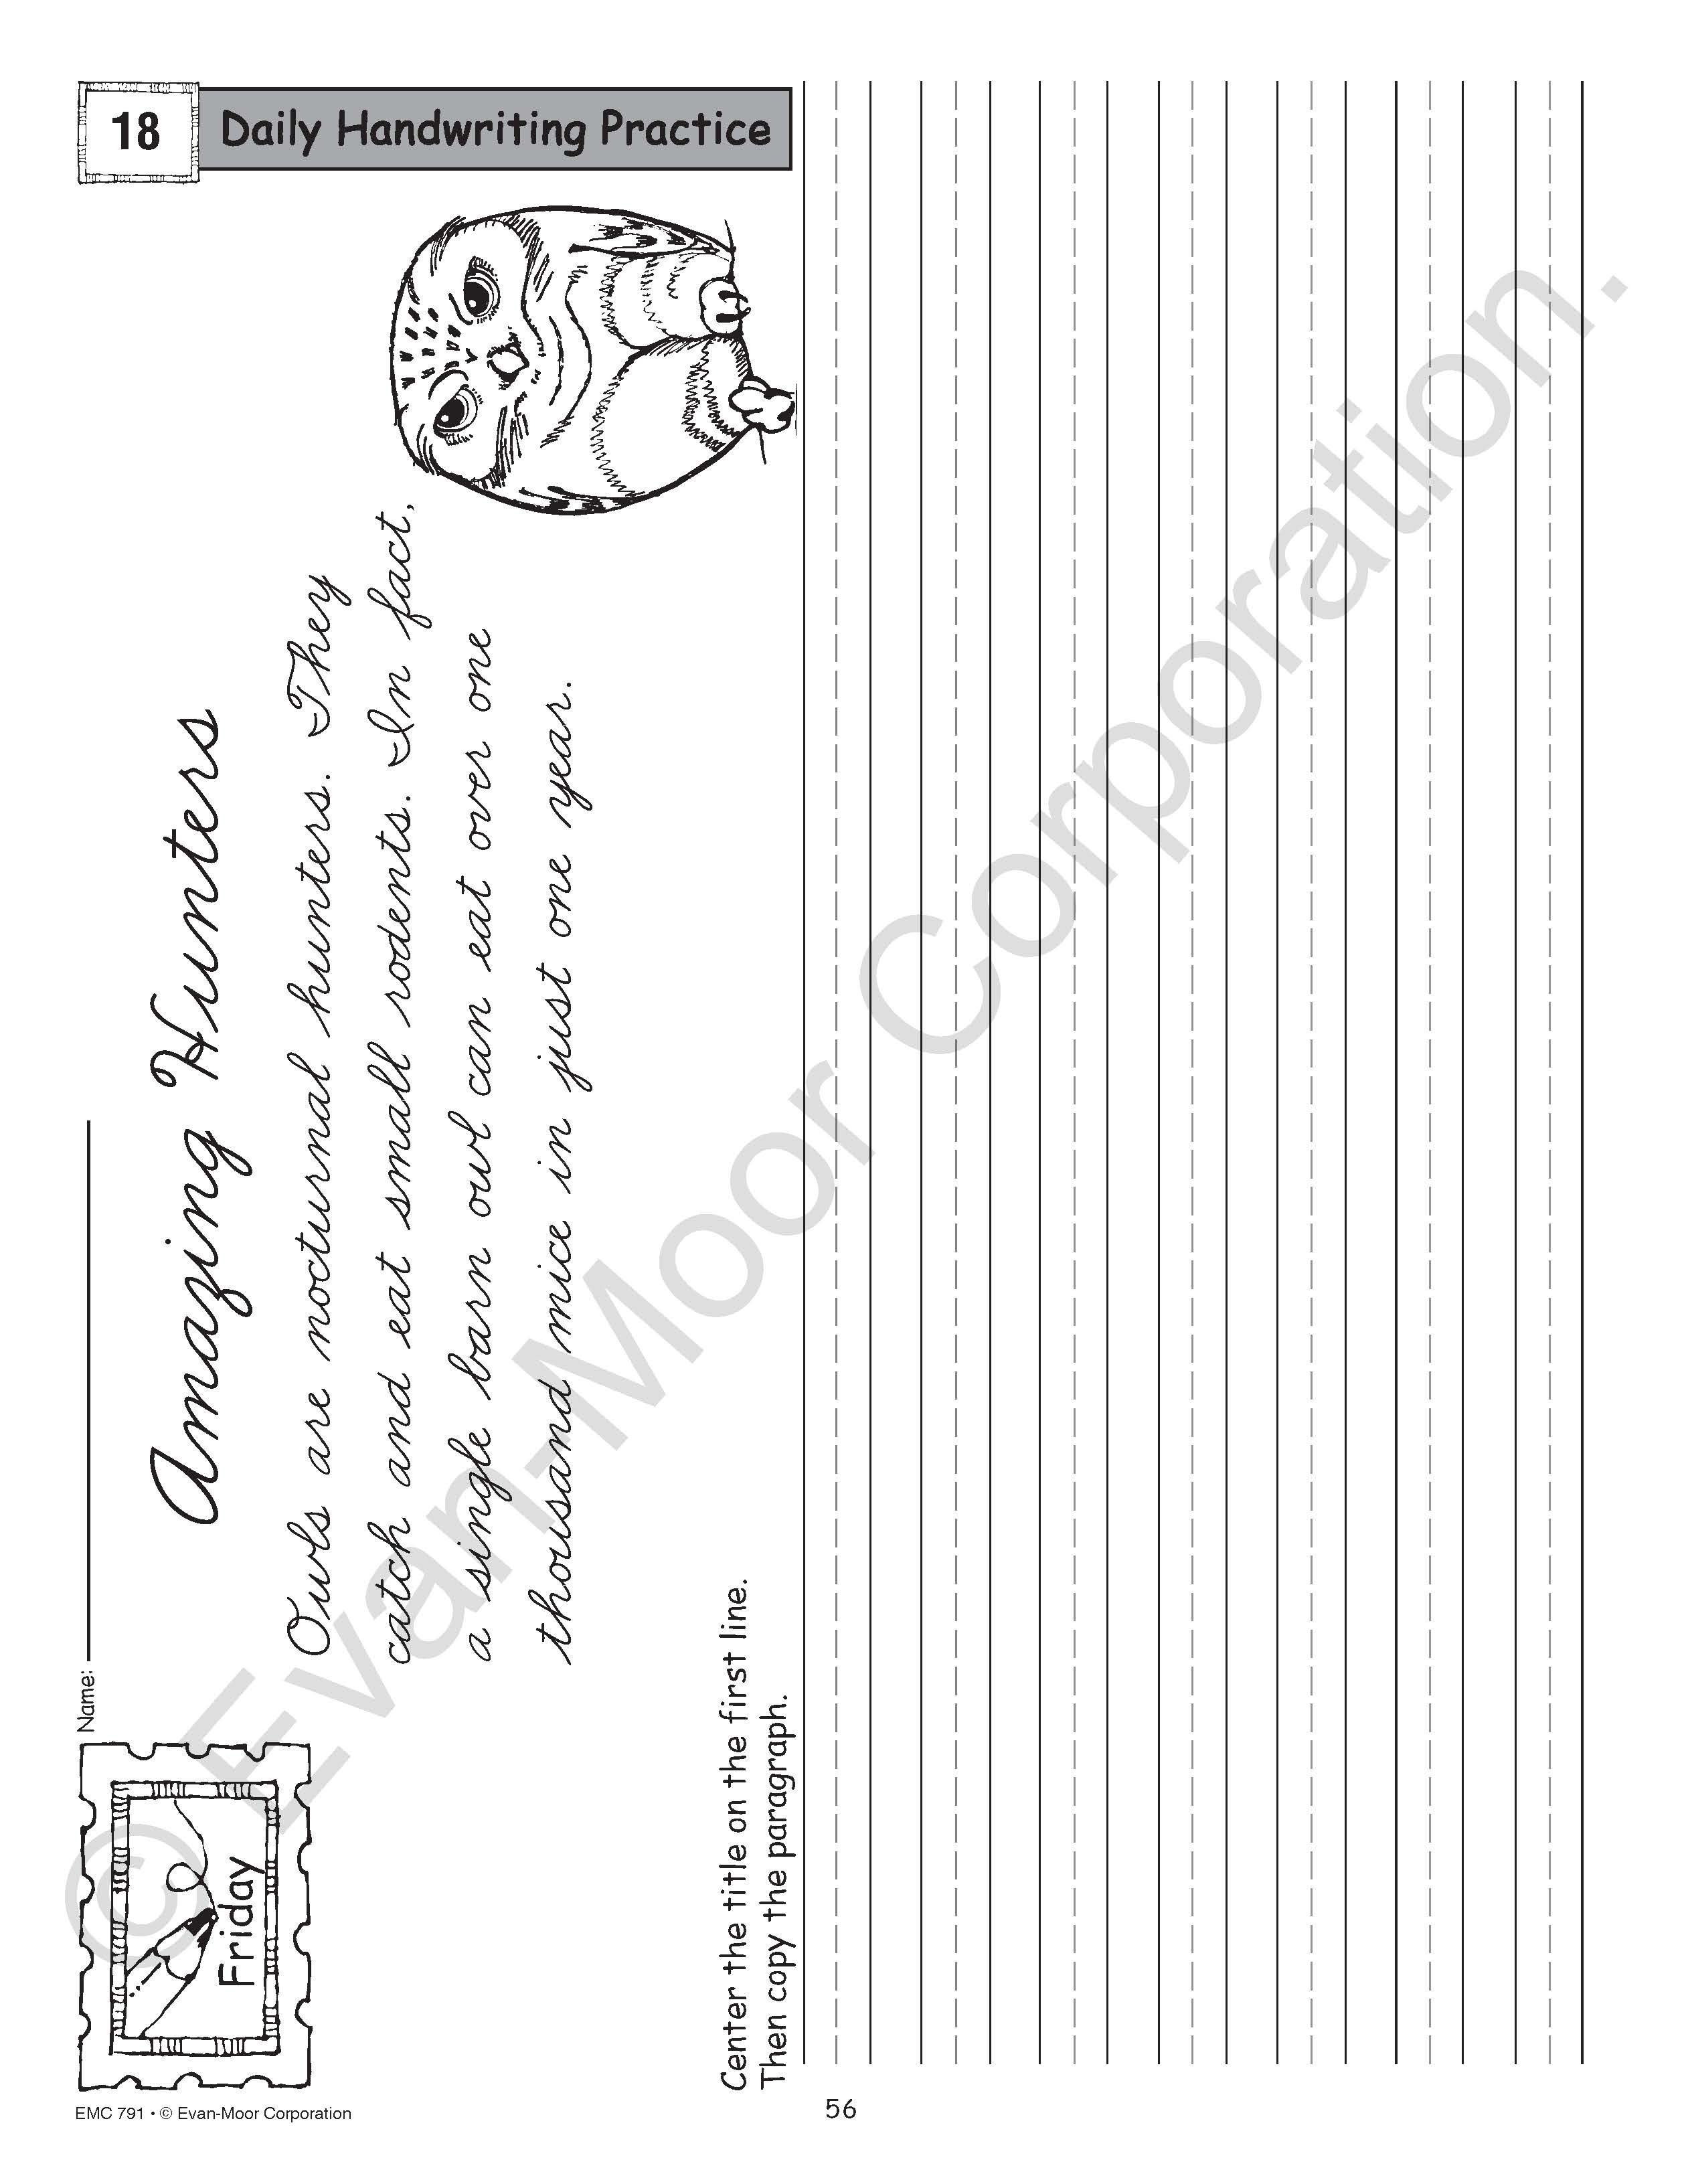 18
Daily Handwriting Practice
Friday
Name:
Amazing Hunters
Owls are nocturnal hunters. They
catch and eat small rodents. In fact,
a single barn owl can eat over one
thousand mice in just one year.
Center the title on the first line.
Then copy the paragraph.
© Evan-Moor Corporation.
EMC 791 • © Evan-Moor Corporation
56